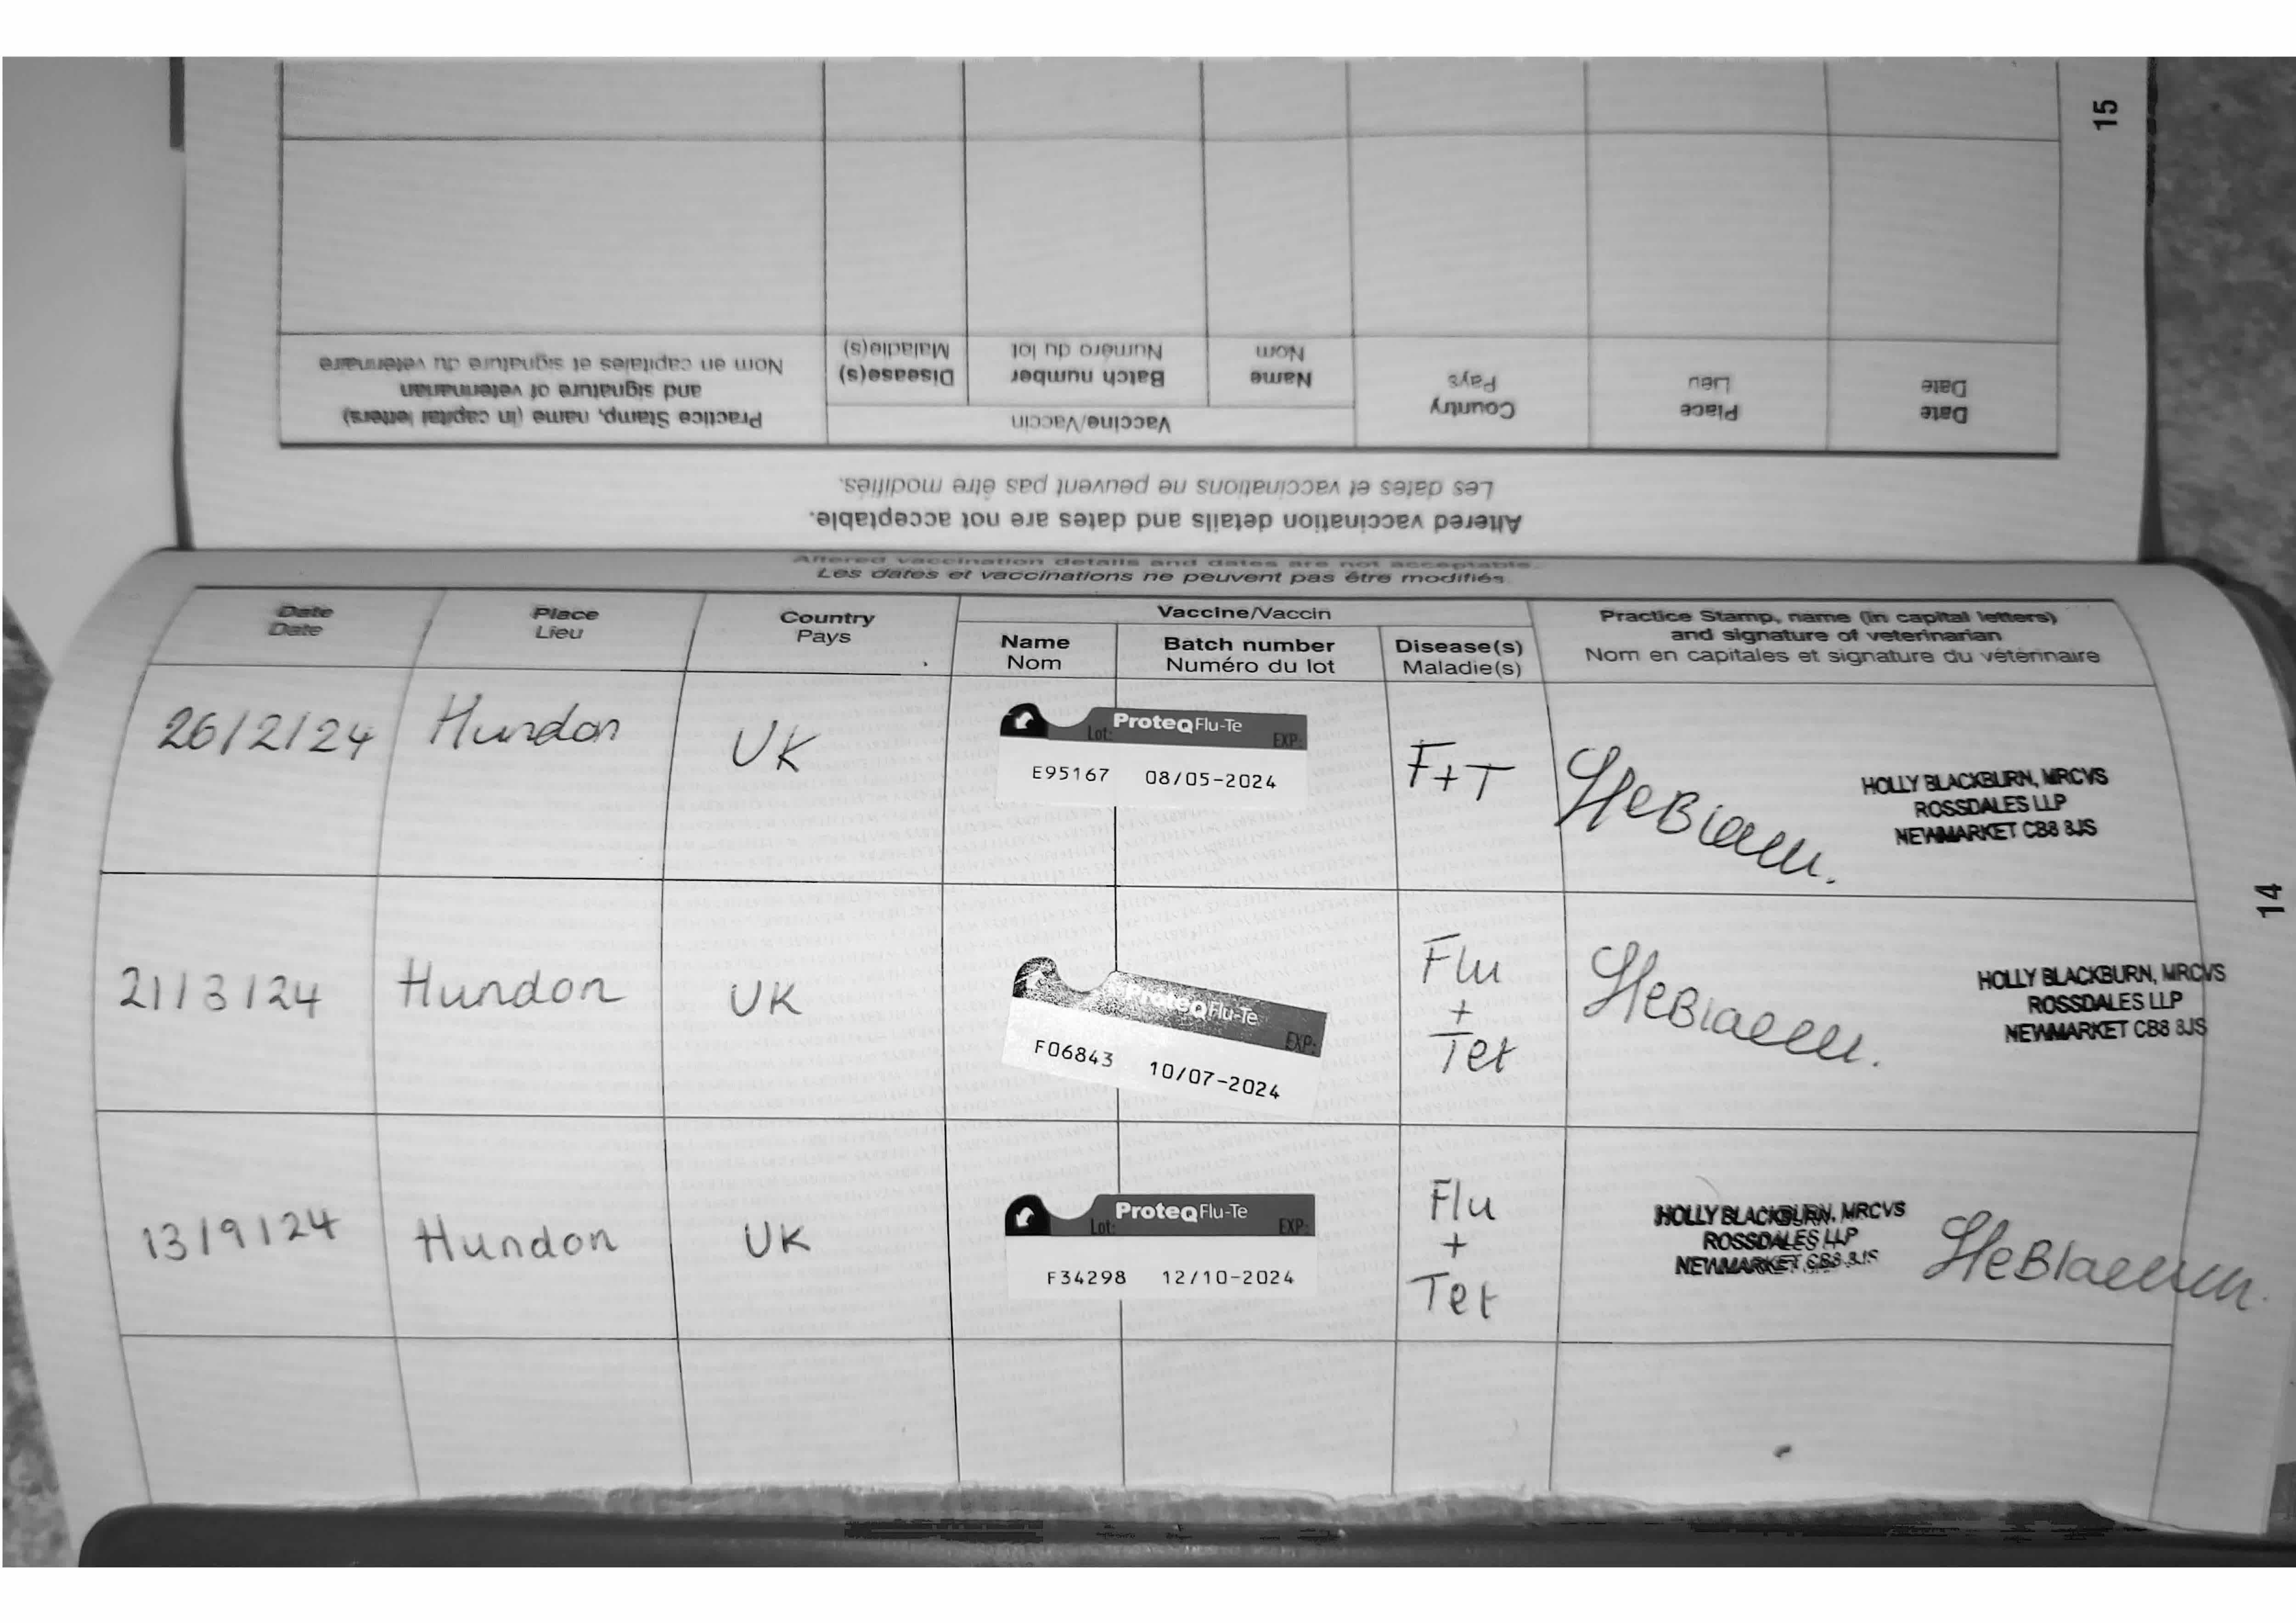 15
Practice Stamp, name (in capital letters)
and signature of veterinarian
Nom en capitales et signature du vétérinaire
Disease(s)
Maladie(s)
Batch number
Numéro du lot
Name
Nom
Vaccine/Vaccin
Country
Pays
Place
Lieu
Date
Date
Les dates et vaccinations ne peuvent pas être modifiés.
Altered vaccination details and dates are not acceptable.
Altered vaccination details and dates are not acceptable.
Les dates et vaccinations ne peuvent pas être modifiés
Date
Date
Place
Lieu
Country
Pays
Vaccine/Vaccin
Name
Nom
Batch number
Numéro du lot
Disease(s)
Maladie(s)
Practice Stamp, name (in capital letters)
and signature of veterinarian
Nom en capitales et signature du vétérinaire
26/2/24 Hundon UK
ProteqFlu-Te
Lot: EXP:
E95167 08/05-2024
F+T
HOLLY BLACKBURN, MRCVS
ROSSDALES LLP
NEWMARKET CB8 8JS
14
21/3/24 Hundon UK
ProteqFlu-Te
EXP:
F06843 10/07-2024
Flu
+
Tet
HOLLY BLACKBURN, MRCVS
ROSSDALES LLP
NEWMARKET CB8 8JS
13/9/24 Hundon UK
ProteqFlu-Te
Lot: EXP:
F34298 12/10-2024
Flu
+
Tet
HOLLY BLACKBURN, MRCVS
ROSSDALES LLP
NEWMARKET CB8 8JS